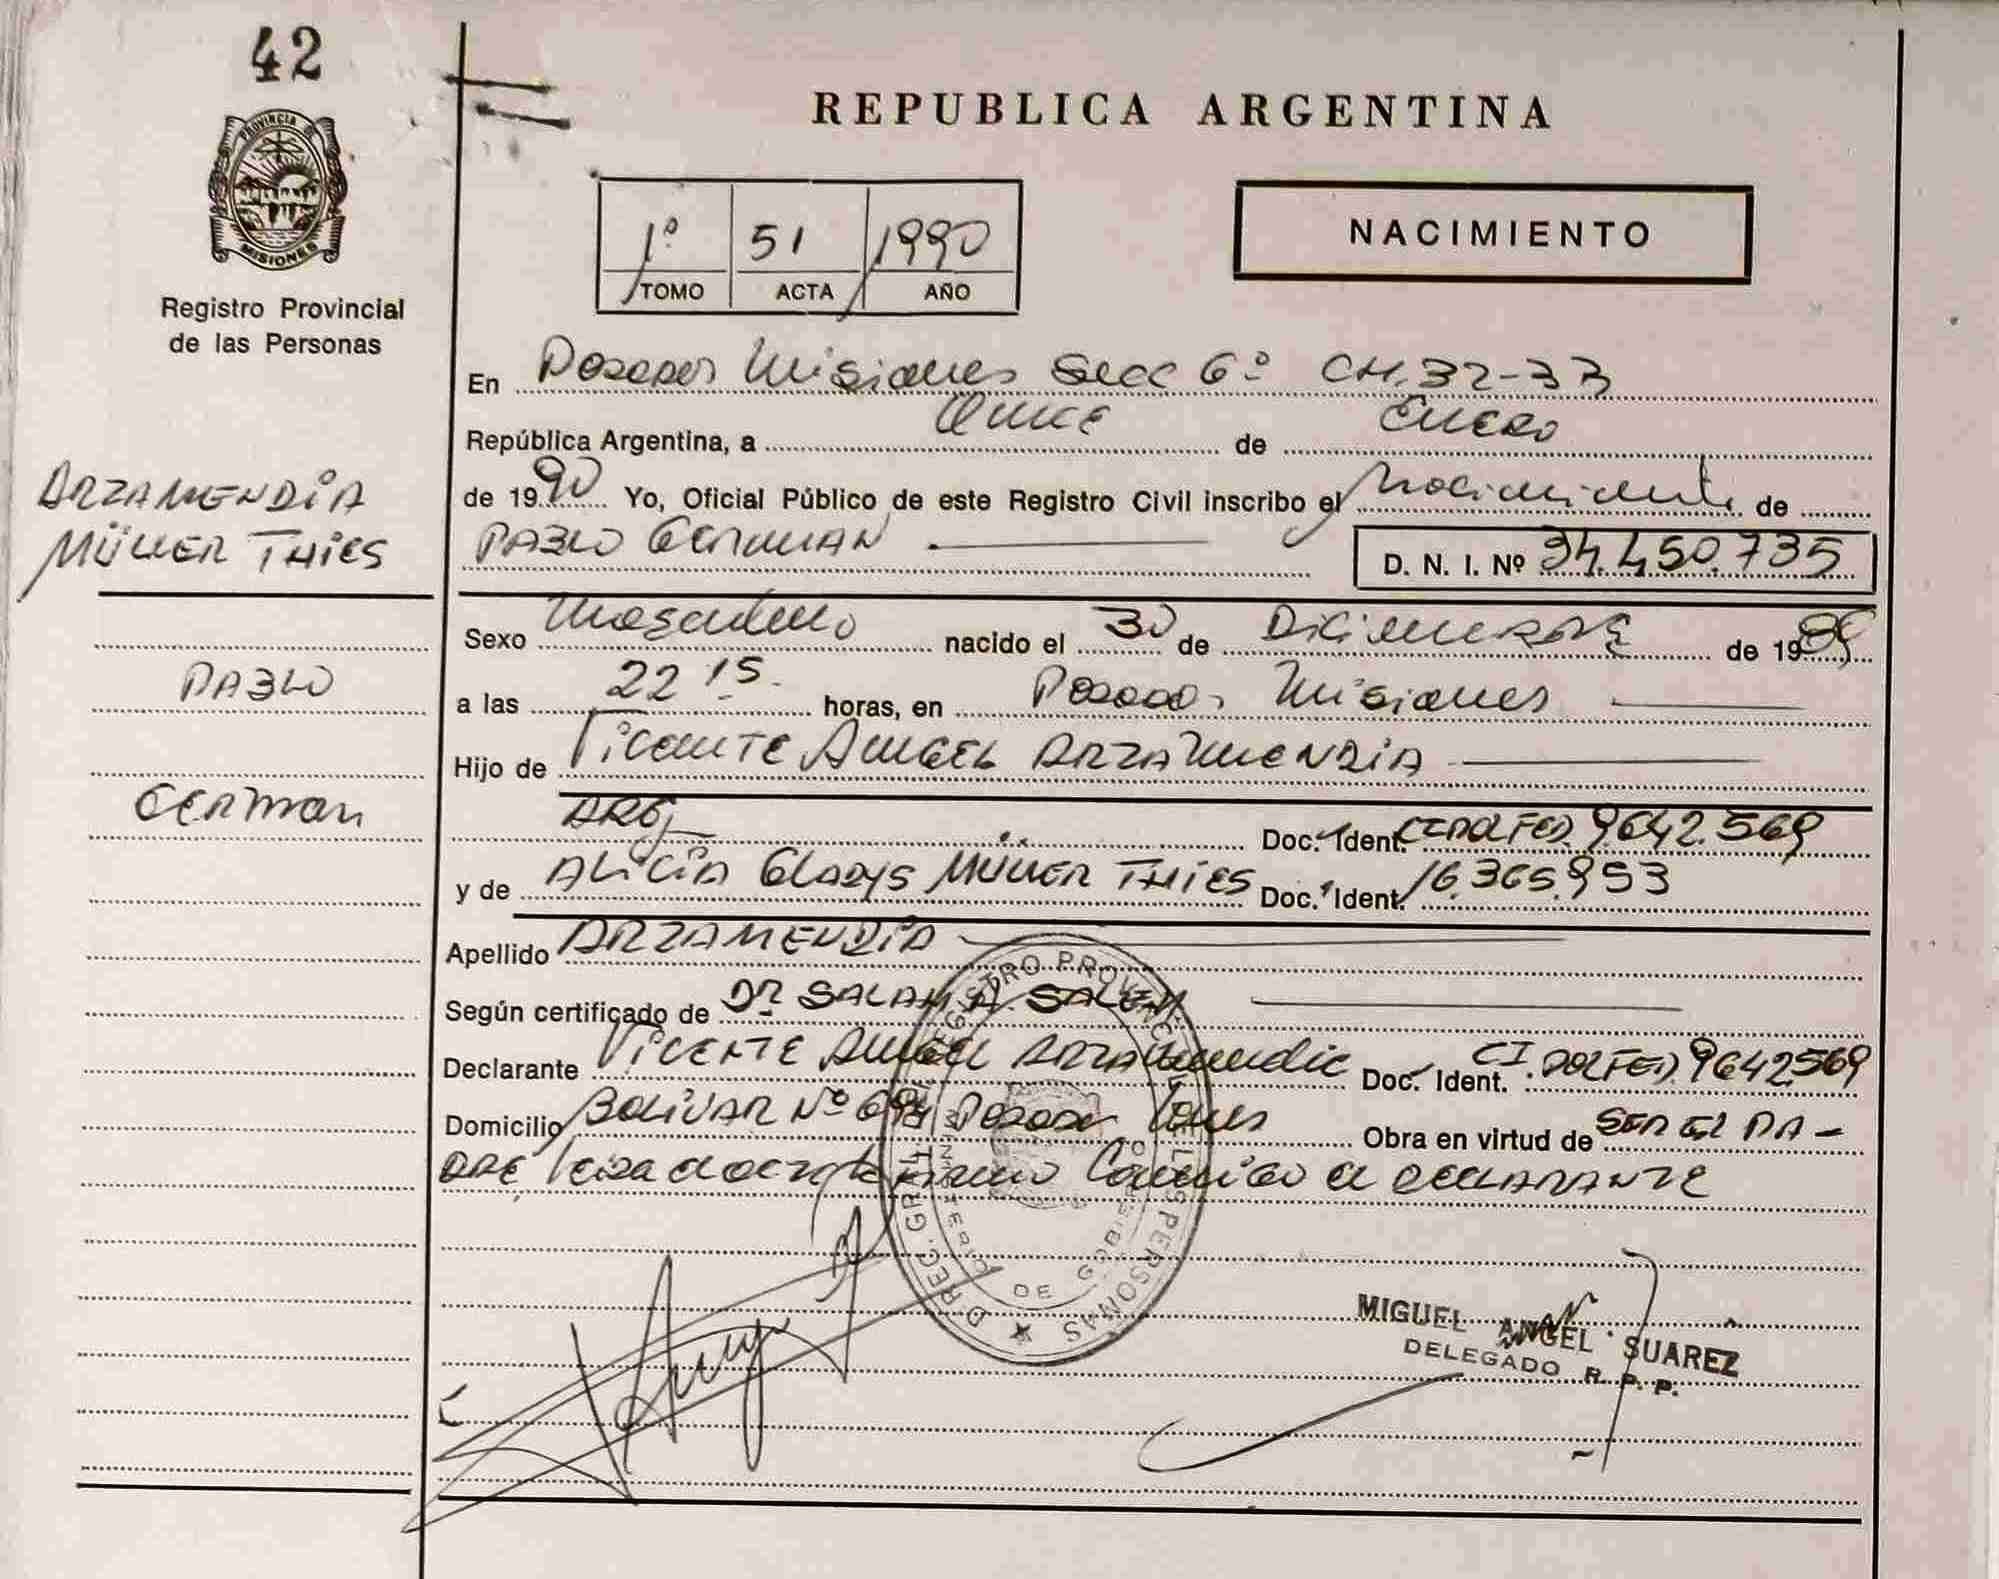 42
PROVINCIA DE
MISIONES
Registro Provincial
de las Personas
ARZAMENDIA
MÜLLER THIES
PABLO
GERMAN
REPUBLICA ARGENTINA
1º 51 1990
TOMO ACTA AÑO
NACIMIENTO
En Posadas Misiones Secc 6º CH. 32-33
República Argentina, a Quince de Enero
de 1990 Yo, Oficial Público de este Registro Civil inscribo el Nacimiento de
PABLO GERMAN D. N. I. Nº 34.450.735
Sexo Masculino nacido el 30 de DICIEMBRE de 1989
a las 22 15 horas, en Posadas Misiones
Hijo de VICENTE ANGEL ARZAMENDIA
ARG. Doc. Ident. CI POL FED. 9642.569
y de ALICIA GLADYS MÜLLER THIES Doc. Ident. 16.365.953
Apellido ARZAMENDIA
Según certificado de DR SALAM A. SALEM
Declarante VICENTE ANGEL ARZAMENDIA Doc. Ident. CI. POL FED. 9642569
Domicilio BOLIVAR Nº Posadas Obra en virtud de SER EL PA-
DRE, leida el acta firma Conmigo el DECLARANTE
DIREC. GRAL. REGISTRO PROVINCIAL DE LAS PERSONAS
MINISTERIO DE GOBIERNO
MIGUEL ANGEL SUAREZ
DELEGADO R. P. P.